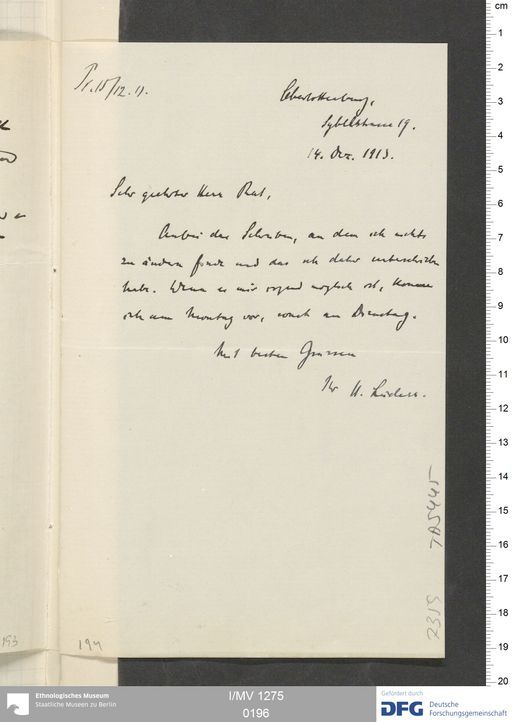 Pr. 15/12. 13.
Charlottenburg,
Sybelstrasse 19.
14. Dez. 1913.
Sehr geehrter Herr Rat,
Anbei das Schreiben, an dem ich nichts
zu ändern finde und das ich daher unterschrieben
habe. Wenn es mir irgend möglich ist, komme
ich am Montag vor, sonst am Dienstag.
Mit besten Grüssen
Ihr H. Lüders.
193
194
2319
cm
1
2
3
4
5
6
7
8
9
10
11
12
13
14
15
16
17
18
19
20
Ethnologisches Museum
Staatliche Museen zu Berlin
I/MV 1275
0196
Gefördert durch
DFG Deutsche
Forschungsgemeinschaft